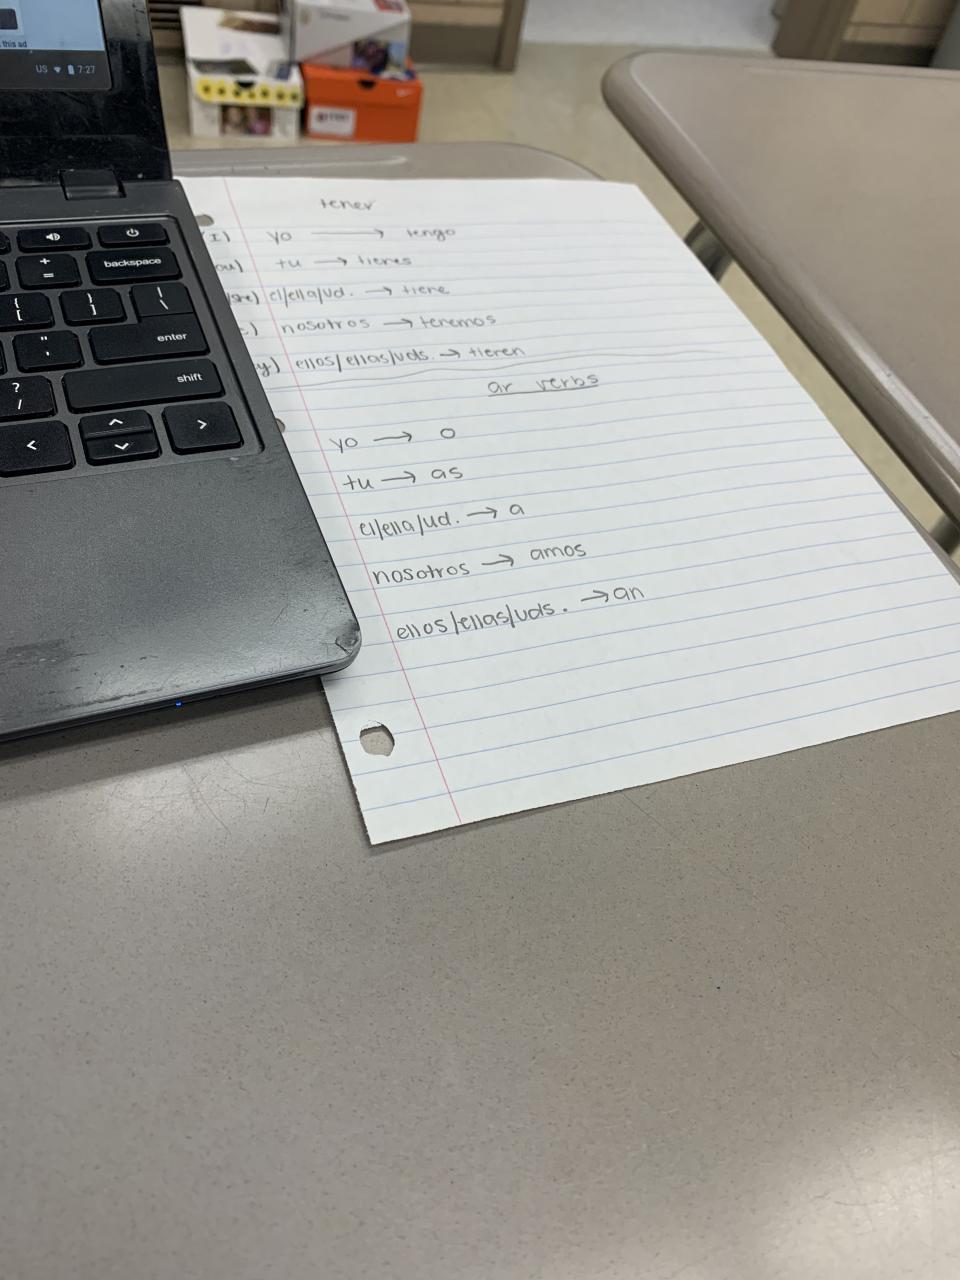 this ad
US 7:27
backspace
enter
shift
+
=
{
[
}
]
|
\
"
'
?
/
<
>
tener
(I) yo → tengo
ou) tu → tieres
/she) el/ella/ud. → tiere
) nosotros → teremos
y) ellos/ellas/uds. → tieren
ar verbs
yo → o
tu → as
el/ella/ud. → a
nosotros → amos
ellos/ellas/uds. → an